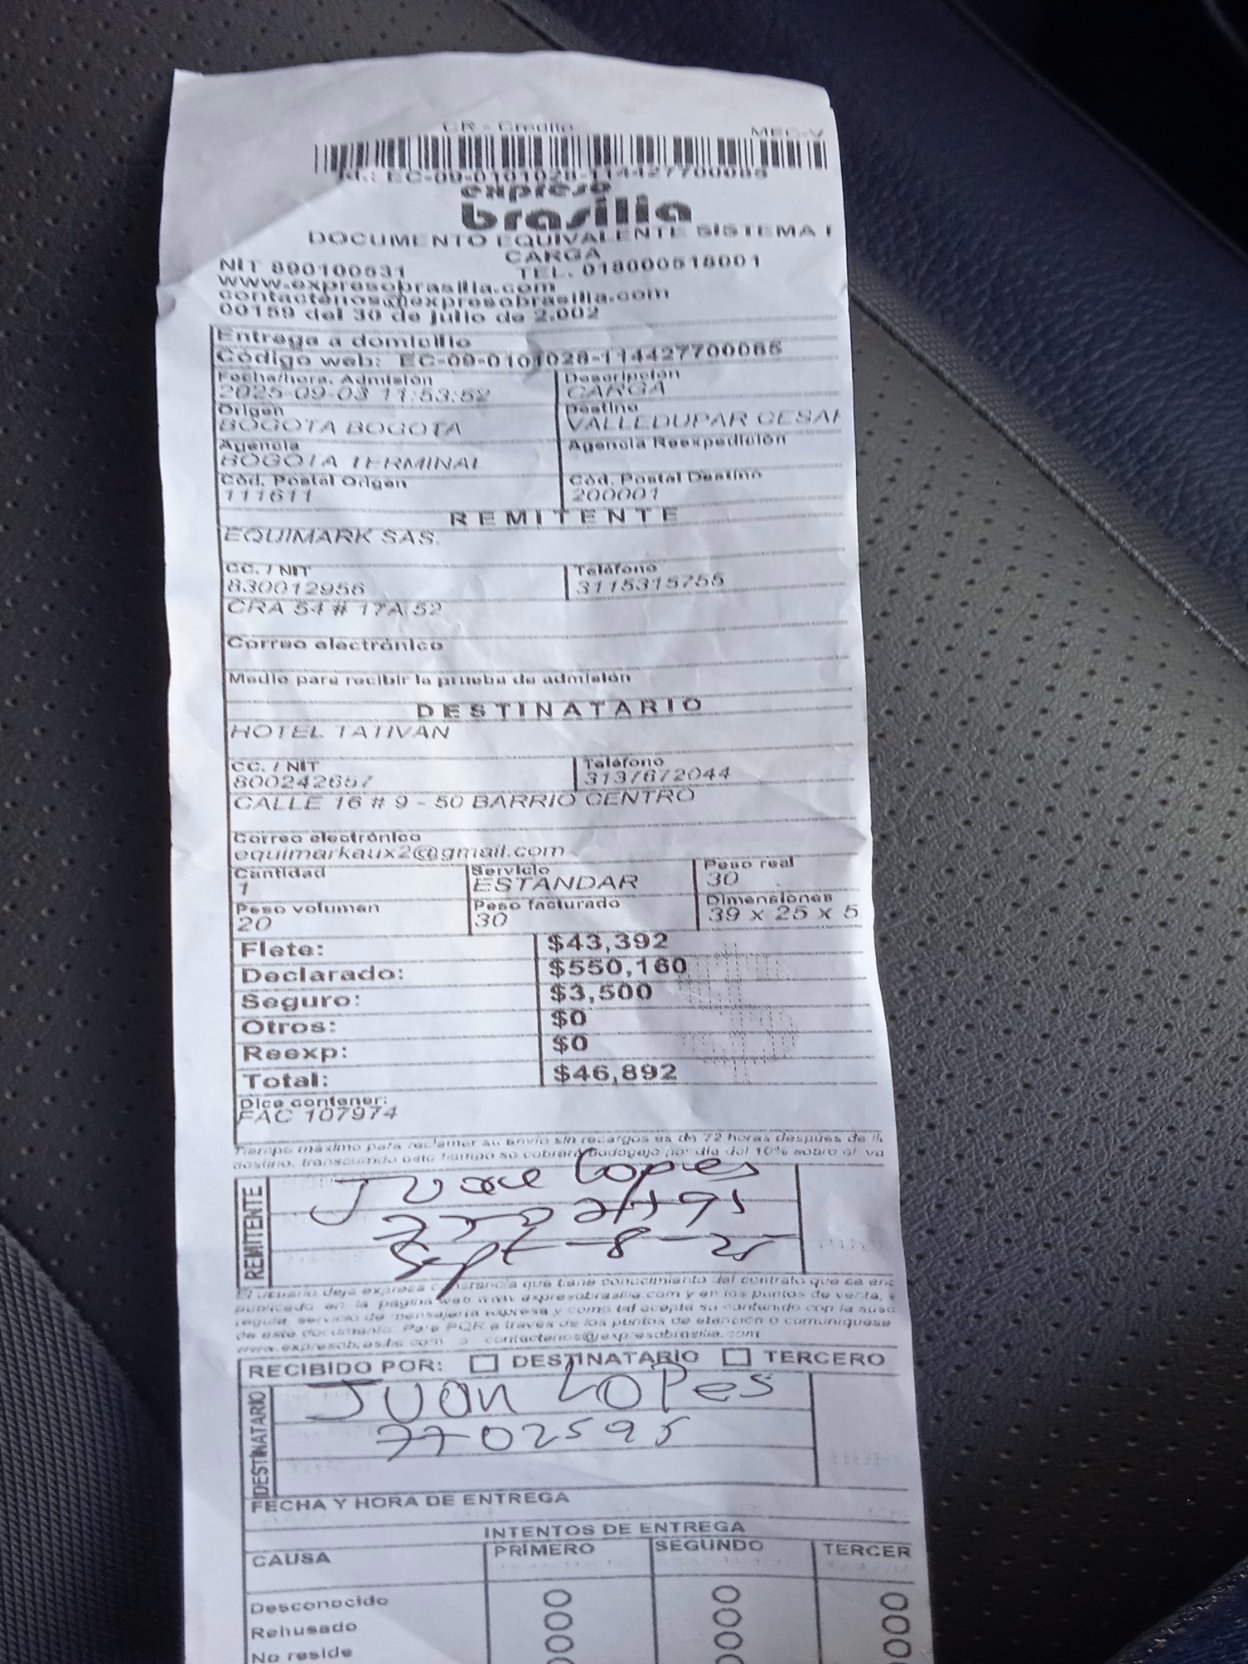 CR - Credito MEC-V
EC-09-0101028-114427700085
expreso
brasilia
DOCUMENTO EQUIVALENTE SISTEMA
CARGA
NIT 890100531 TEL. 018000518001
www.expresobrasilia.com
contactenos@expresobrasilia.com
00159 del 30 de julio de 2.002
Entrega a domicilio
Código web: EC-09-0101028-114427700085
Fecha/hora. Admisión Descripción
2025-09-03 11:53:52 CARGA
Origen Destino
BOGOTA BOGOTA VALLEDUPAR CESAR
Agencia Agencia Reexpedición
BOGOTA TERMINAL
Cód. Postal Origen Cód. Postal Destino
111611 200001
REMITENTE
EQUIMARK SAS.
CC. / NIT Teléfono
830012956 3115315755
CRA 54 # 17A 52
Correo electrónico
Medio para recibir la prueba de admisión
DESTINATARIO
HOTEL TATIVAN
CC. / NIT Teléfono
800242657 3137672044
CALLE 16 # 9 - 50 BARRIO CENTRO
Correo electrónico
equimarkaux2@gmail.com
Cantidad Servicio Peso real
1 ESTANDAR 30
Peso volumen Peso facturado Dimensiones
20 30 39 x 25 x 5
Flete: $43,392
Declarado: $550,160
Seguro: $3,500
Otros: $0
Reexp: $0
Total: $46,892
Dice contener:
FAC 107974
Tiempo máximo para reclamar su envío sin recargos es de 72 horas después de
destino, transcurrido este tiempo se cobrará bodegaje por día del 10% sobre el va
REMITENTE
Lopes
Sept-8-25
El usuario deja expresa constancia que tiene conocimiento del contrato que se enc
publicado en la página web www.expresobrasilia.com y en los puntos de venta,
regula servicio de mensajería expresa y como tal acepta su contenido con la susc
de este documento. Para PQR a través de los puntos de atención o comuníquese
www.expresobrasilia.com o contactenos@expresobrasilia.com
RECIBIDO POR: DESTINATARIO TERCERO
DESTINATARIO
JUAN LOPes
7702595
FECHA Y HORA DE ENTREGA
INTENTOS DE ENTREGA
CAUSA PRIMERO SEGUNDO TERCER
Desconocido
Rehusado
No reside